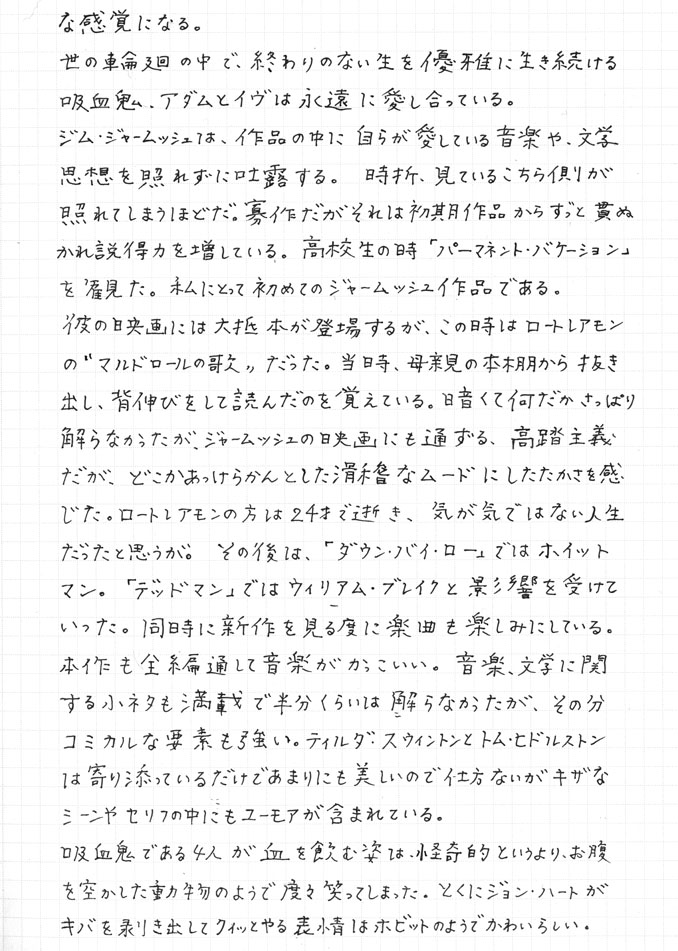 な感覚になる。
世の輪廻の中で、終わりのない生を優雅に生き続ける
吸血鬼、アダムとイヴは永遠に愛し合っている。
ジム・ジャームッシュは、作品の中に自らが愛している音楽や、文学
思想を照れずに吐露する。 時折、見ているこちら側が
照れてしまうほどだ。寡作だがそれは初期作品からずっと貫ぬ
かれ説得力を増している。高校生の時「パーマネント・バケーション」
を濯見た。私にとって初めてのジャームッシュ作品である。
彼の映画には大抵本が登場するが、この時はロートレアモン
の"マルドロールの歌〟だった。当時、母親の本棚から抜き
出し、背伸びをして読んだのを覚えている。暗くて何だかさっぱり
解らなかったが、ジャームッシュの映画にも通ずる、高踏主義
だが、どこかあっけらかんとした滑稽なムードにしたたかさを感
じた。ロートレアモンの方は24才で逝き、気が気ではない人生
だったと思うが。 その後は、「ダウン・バイ・ロー」ではホイット
マン。「デッドマン」ではウィリアム・ブレイクと影響を受けて
いった。同時に新作を見る度に楽曲も楽しみにしている。
本作も全編通して音楽がかっこいい。 音楽、文学に関
する小ネタも満載で半分くらいは解らなかったが、その分
コミカルな要素も強い。ティルダ・スウィントンとトム・ヒドルストン
は寄り添っているだけであまりにも美しいので仕方ないがキザな
シーンやセリフの中にもユーモアが含まれている。
吸血鬼である4人が血を飲む姿は、怪奇的というより、お腹
を空かした動物のようで度々笑ってしまった。とくにジョン・ハートが
キバを剥き出してクィッとやる表情はホビットのようでかわいらしい。